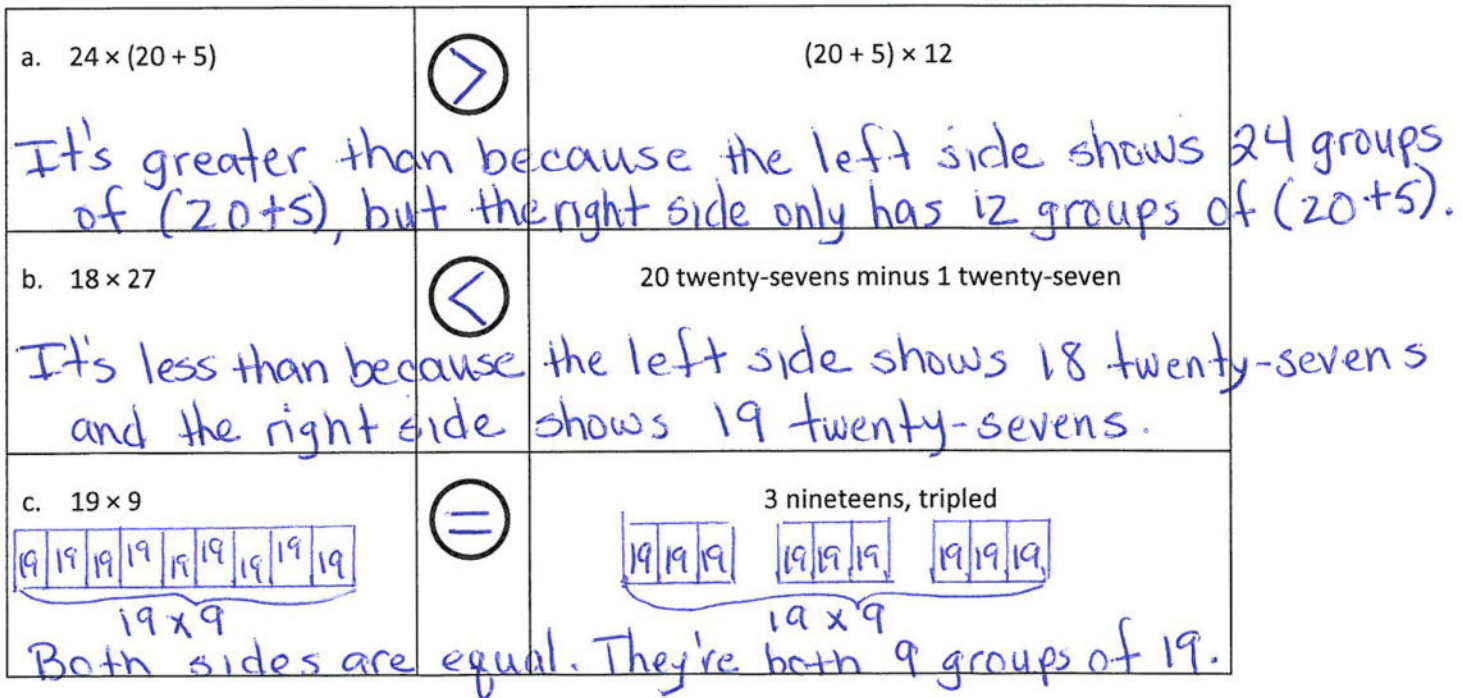 a. 24 × (20 + 5) > (20 + 5) × 12
It's greater than because the left side shows 24 groups
of (20+5), but the right side only has 12 groups of (20+5).
b. 18 × 27 < 20 twenty-sevens minus 1 twenty-seven
It's less than because the left side shows 18 twenty-sevens
and the right side shows 19 twenty-sevens.
c. 19 × 9 = 3 nineteens, tripled
19 19 19 19 19 19 19 19 19 19 19 19 19 19 19 19 19 19
19 x 9 19 x 9
Both sides are equal. They're both 9 groups of 19.